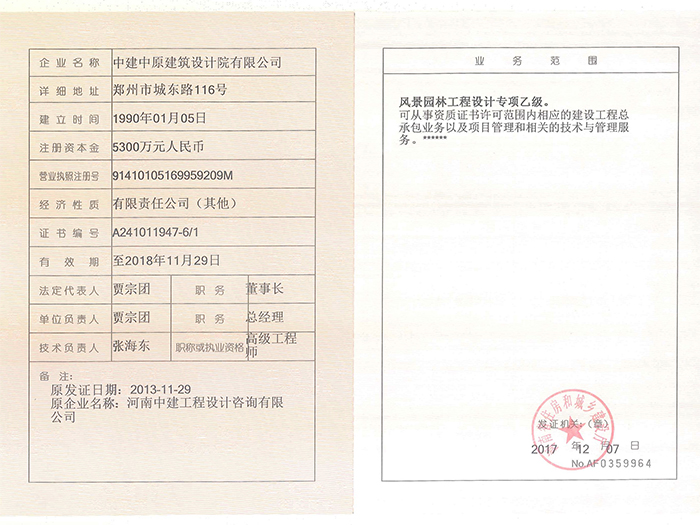 企业名称 中建中原建筑设计院有限公司
详细地址 郑州市城东路116号
建立时间 1990年01月05日
注册资本金 5300万元人民币
营业执照注册号 91410105169959209M
经济性质 有限责任公司（其他）
证书编号 A241011947-6/1
有效期 至2018年11月29日
法定代表人 贾宗团 职务 董事长
单位负责人 贾宗团 职务 总经理
技术负责人 张海东 职称或执业资格 高级工程师
备注：
原发证日期：2013-11-29
原企业名称：河南中建工程设计咨询有限
公司
业务范围
风景园林工程设计专项乙级。
可从事资质证书许可范围内相应的建设工程总
承包业务以及项目管理和相关的技术与管理服
务。******
河南省住房和城乡建设厅
发证机关：（章）
2017年12月07日
No.AF0359964